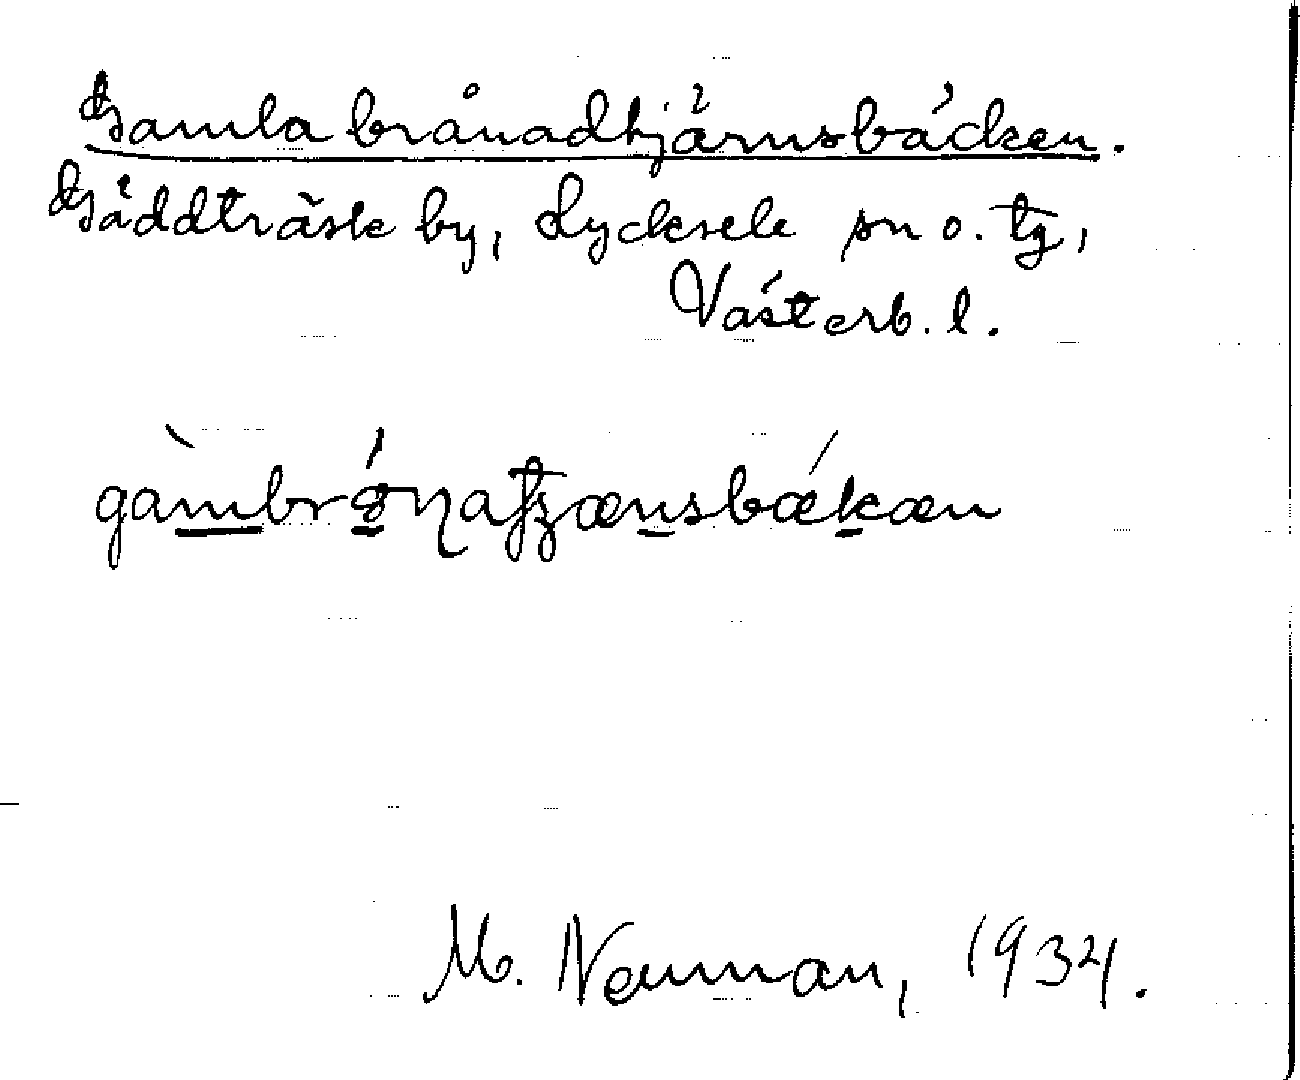 Gamla brånadtjärnsbäcken.
Gäddträsk by, Lycksele sn o. tg,
Västerb. l.
gàmbrǿŋatʃænsbǽkæn
M. Neuman, 1934.